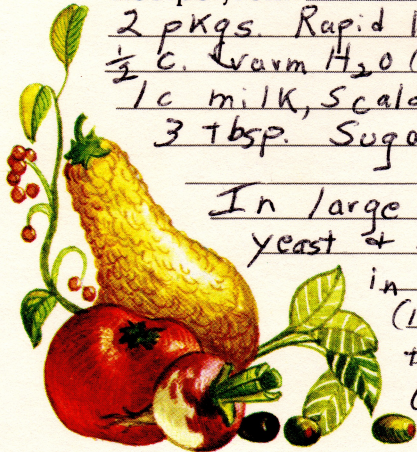 2 pkgs. Rapid
½ c. warm H₂O (
1c milk, Scal
3 tbsp. Suga
In large
yeast &
in
(1
t
(